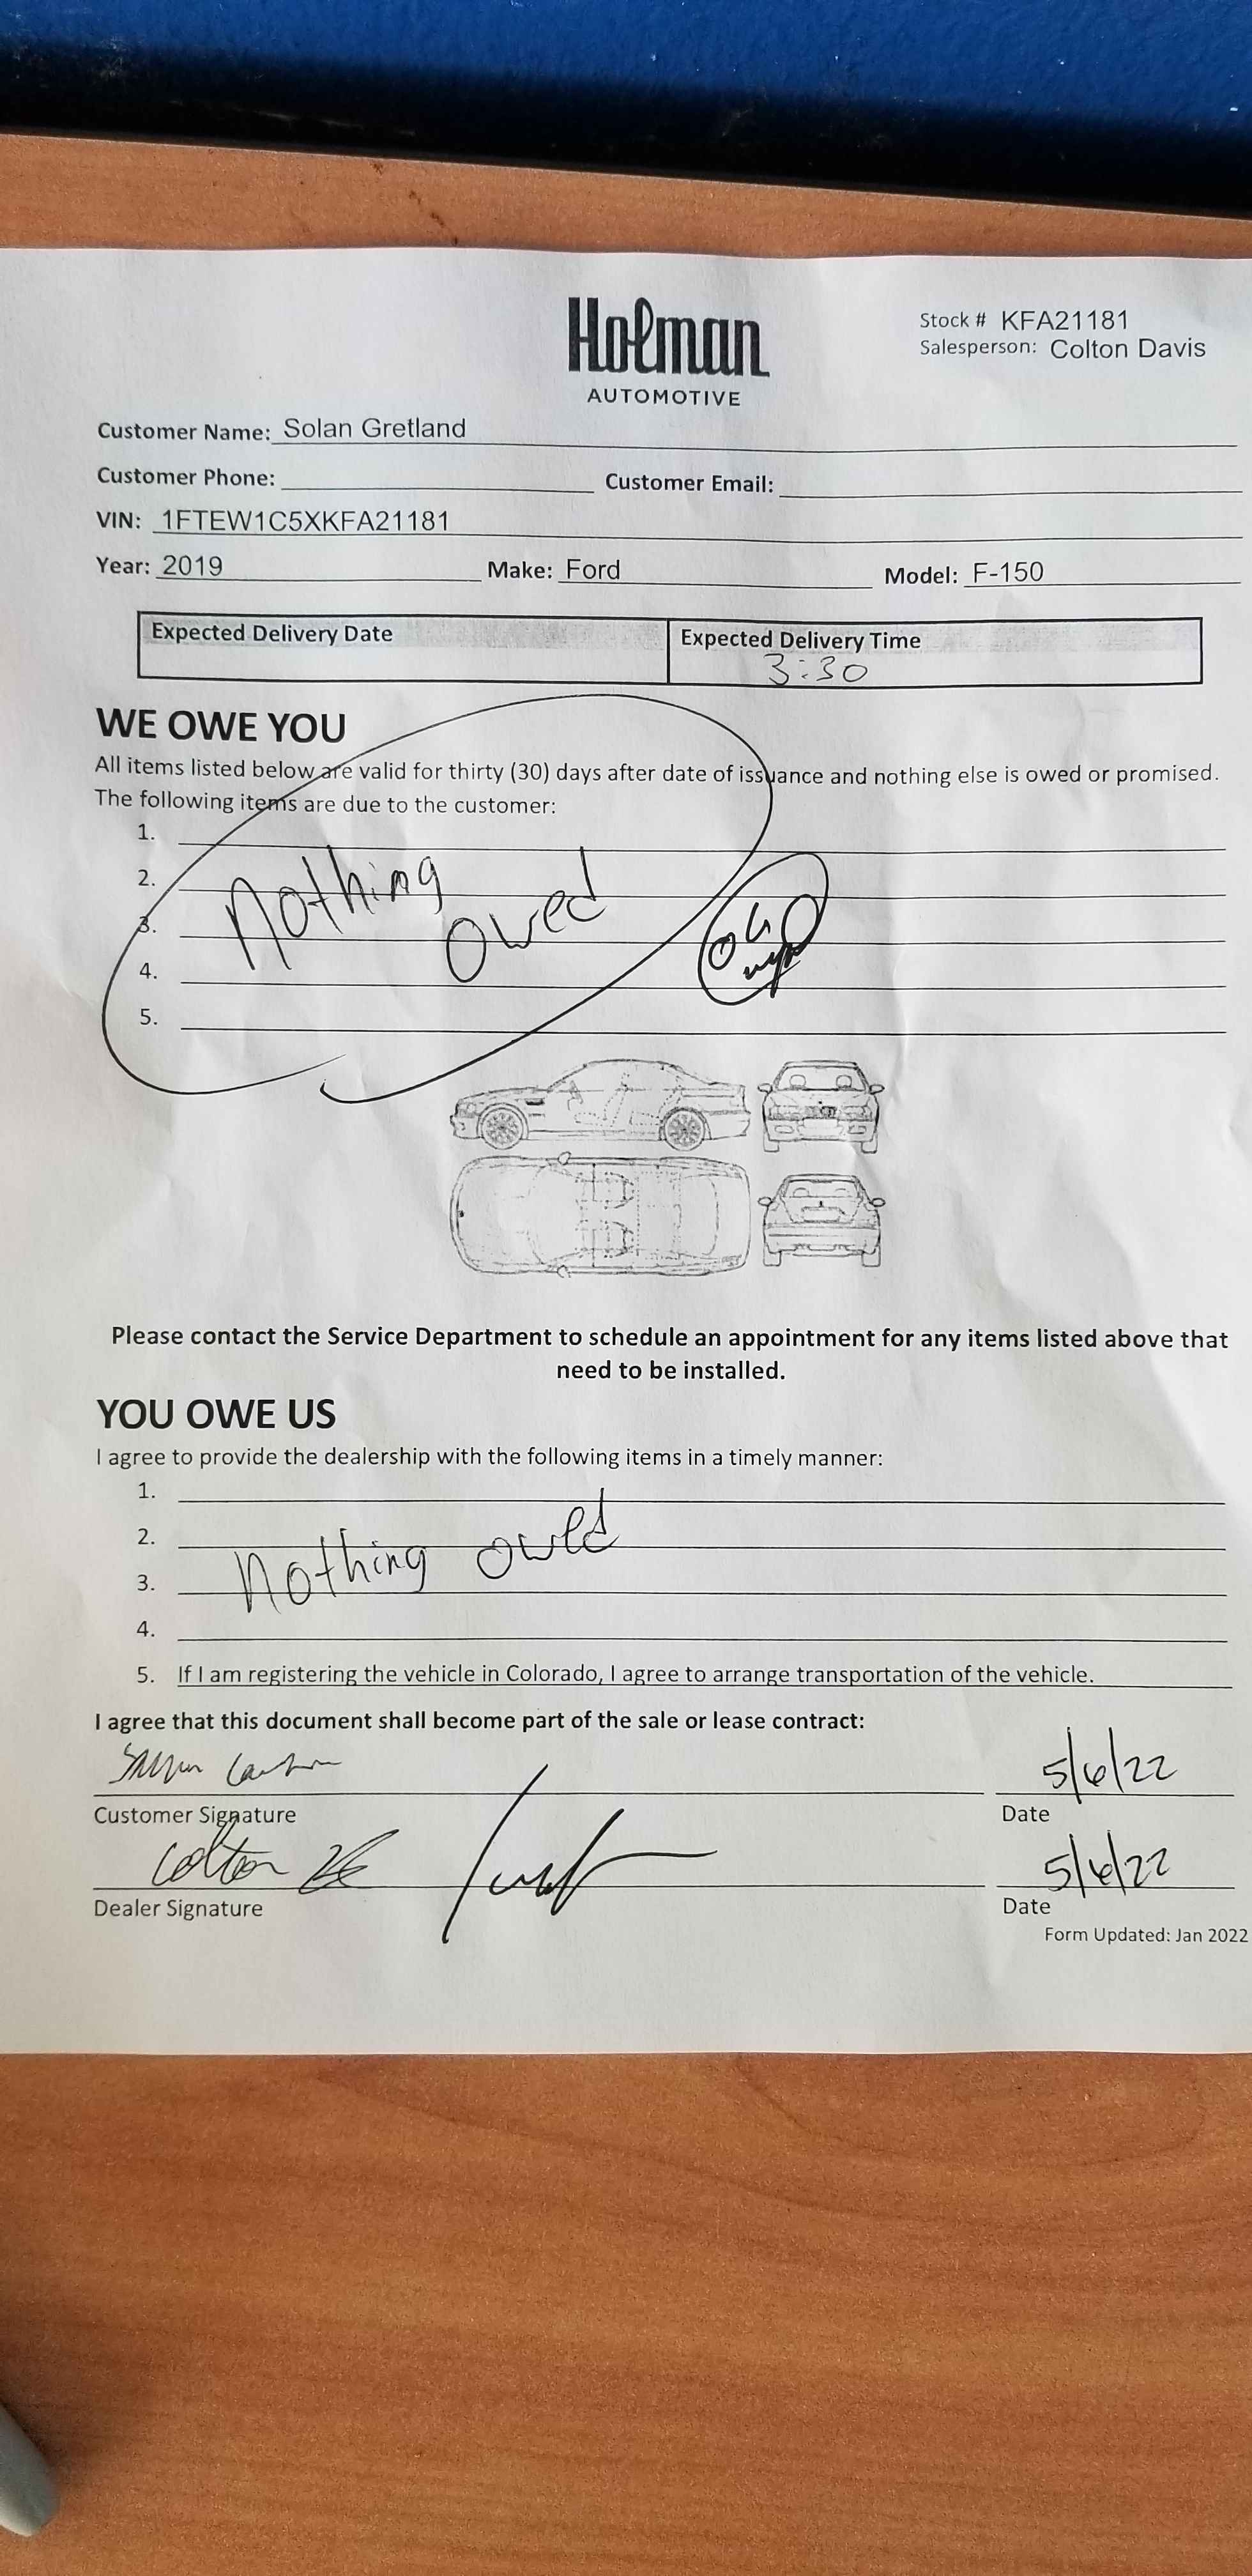 Holman
AUTOMOTIVE
Stock # KFA21181
Salesperson: Colton Davis
Customer Name: Solan Gretland
Customer Phone: Customer Email:
VIN: 1FTEW1C5XKFA21181
Year: 2019 Make: Ford Model: F-150
Expected Delivery Date Expected Delivery Time
3:30
WE OWE YOU
All items listed below are valid for thirty (30) days after date of issuance and nothing else is owed or promised.
The following items are due to the customer:
1.
2.
3.
4.
5.
Nothing
owed
Please contact the Service Department to schedule an appointment for any items listed above that
need to be installed.
YOU OWE US
I agree to provide the dealership with the following items in a timely manner:
1.
2.
3.
Nothing owed
4.
5. If I am registering the vehicle in Colorado, I agree to arrange transportation of the vehicle.
I agree that this document shall become part of the sale or lease contract:
5/6/22
Customer Signature Date
Colton 5/6/22
Dealer Signature Date
Form Updated: Jan 2022